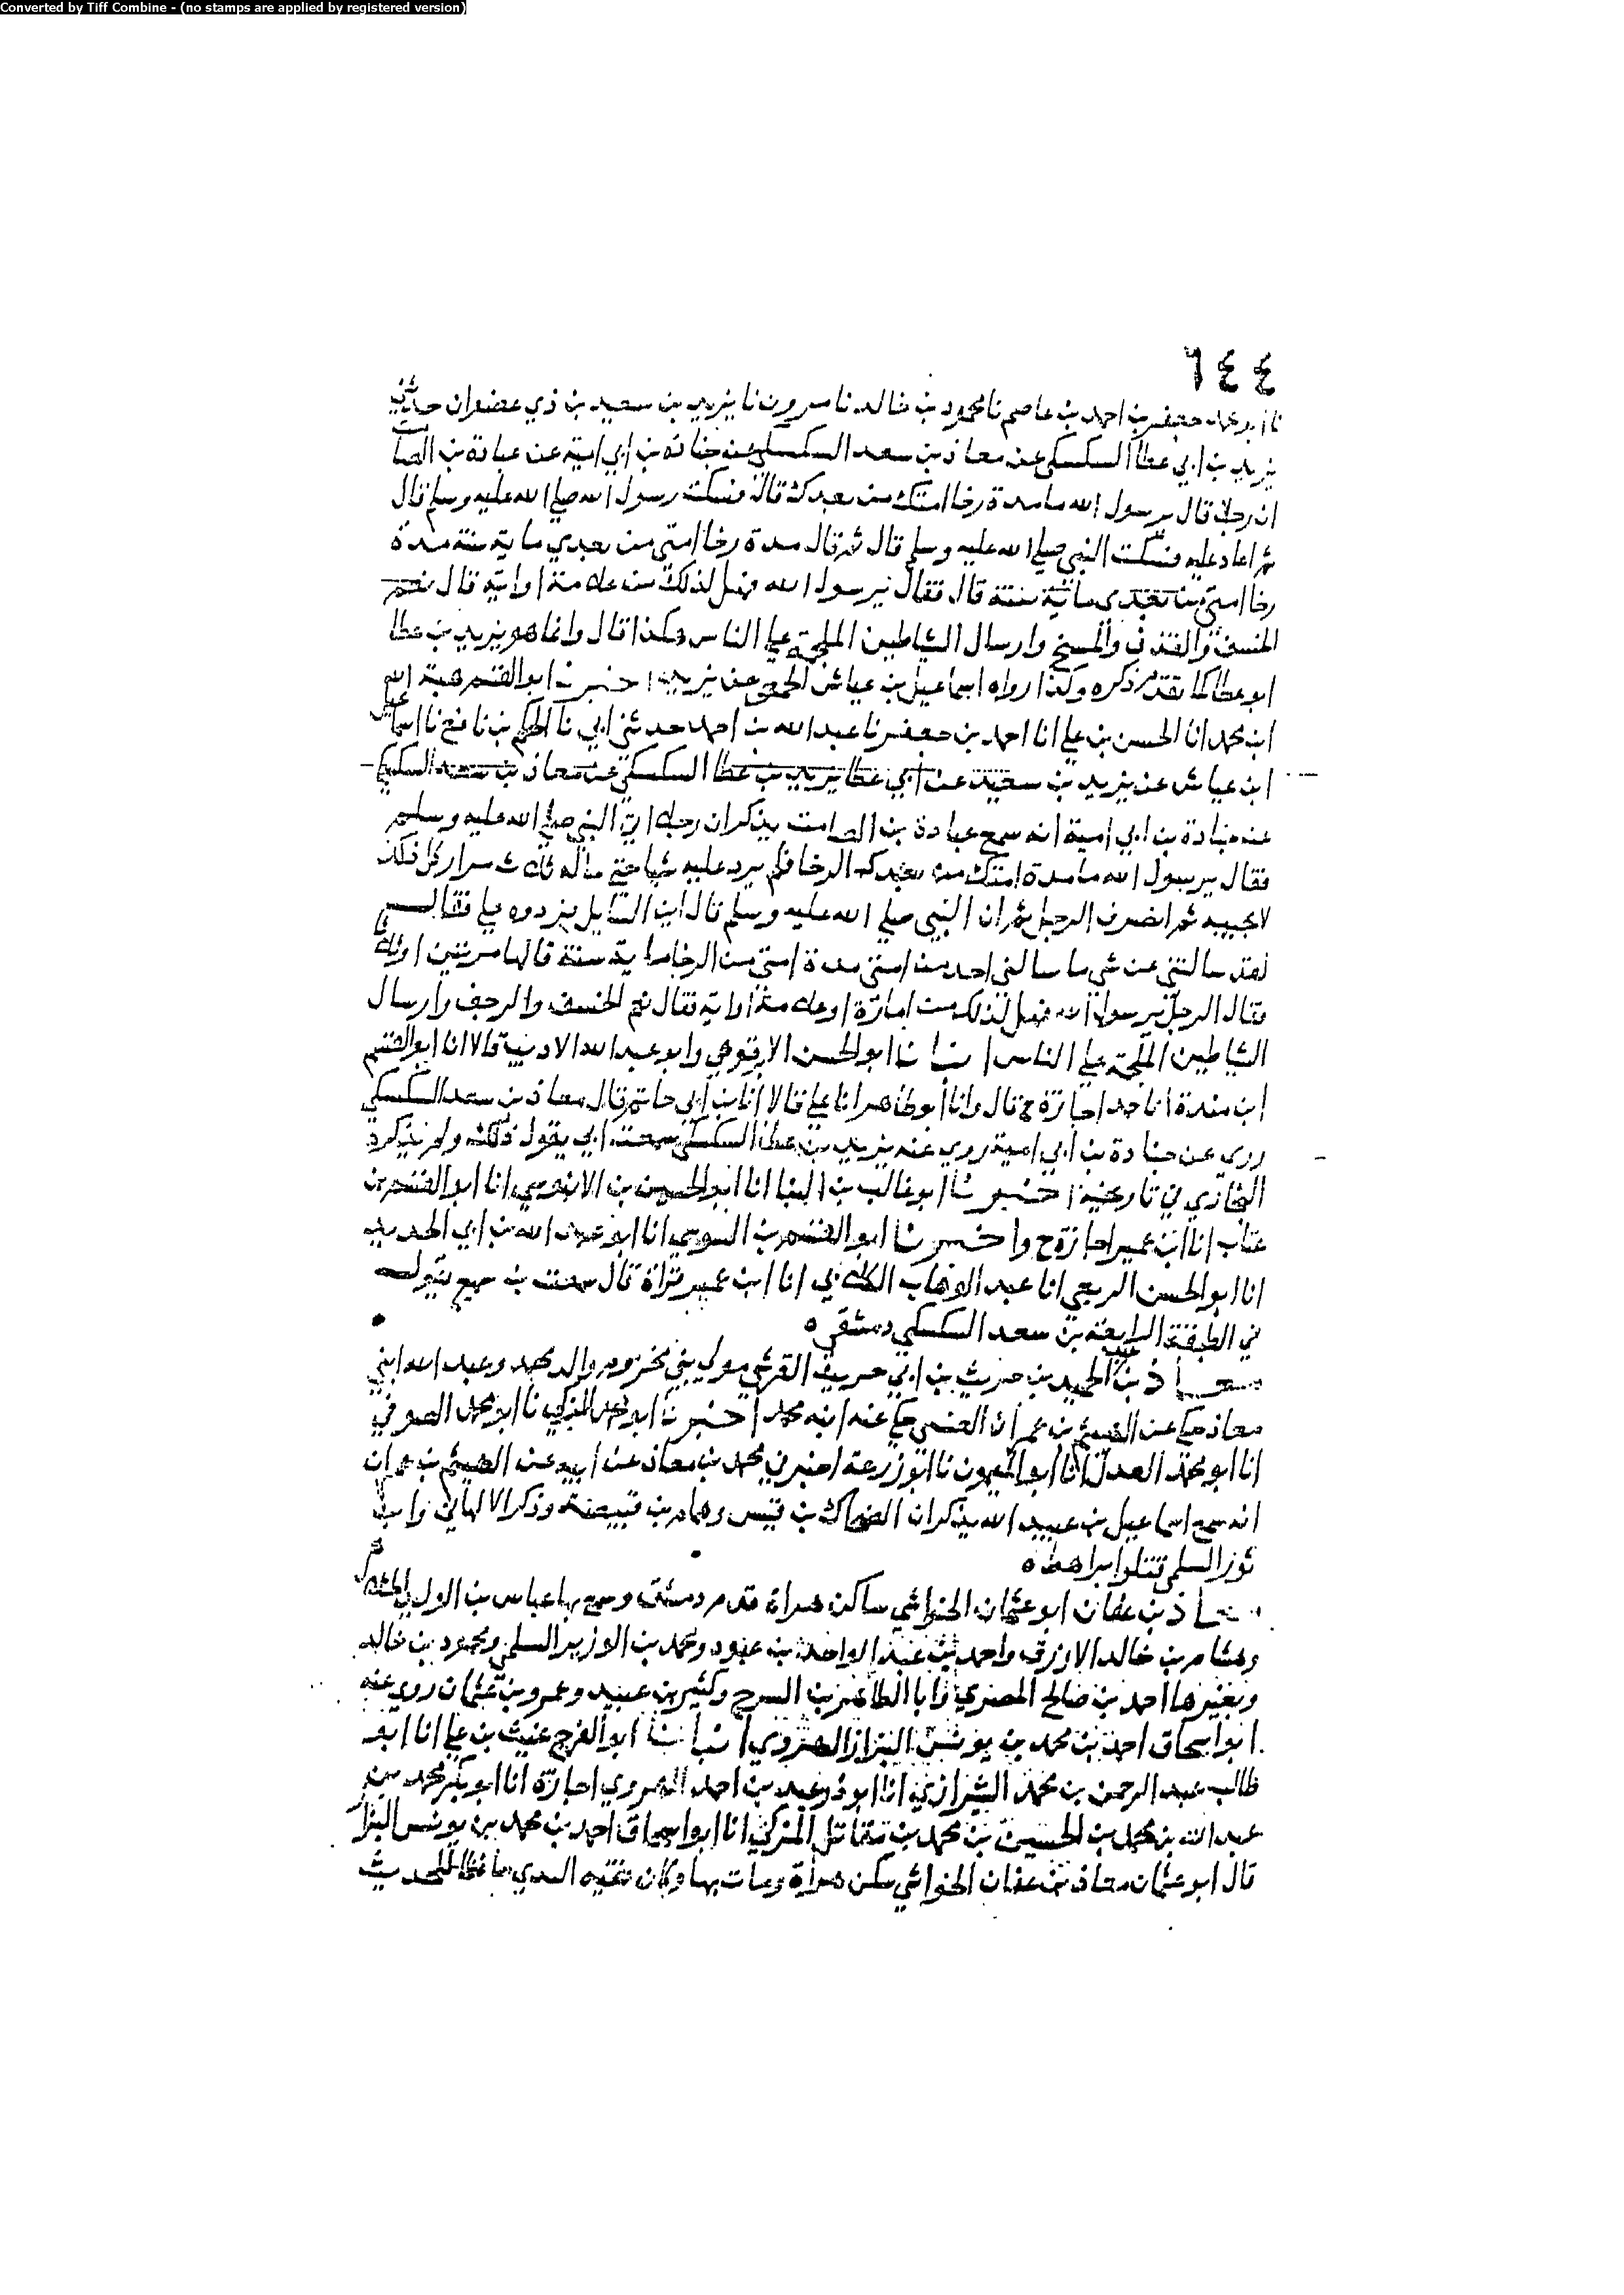 Converted by Tiff Combine - (no stamps are applied by registered version)
٦٤٤
نا ابو محمد جعفر بن احمد بن عاصم نا محمود بن خالد نا مروان نا يزيد بن سعيد بن ذي عصوان حدثني
يزيد بن ابي عطا السكسكي عن معاذ بن سعد السكسكي عن جنادة بن ابي امية عن عبادة بن الصامت
ان رجلا قال يرسول الله ما مدة رخا امتك من بعدك قال فسكت رسول الله صلي الله عليه وسلم قال
ثم اعاد عليه فسكت النبي صلي الله عليه وسلم قال ثم قال مدة رخا امتي من بعدي ماية سنة مدة
رخا امتي من بعدي ماية سنة قال فقال يرسول الله فهل لذلك من علامة او اية قال نعم
الخسف والقذف والمسخ وارسال الشياطين الملجمة علي الناس هكذا قال وانما هو يزيد بن عطا
ابو عطا كما تقدم ذكره وكذا رواه اسماعيل بن عياش الحمصي عن يزيد اخبرنا ابو القسم هبة الله
ابن محمد انا الحسن بن علي انا احمد بن جعفر نا عبد الله بن احمد حدثني ابي نا الحكم بن نافع نا اسماعيل
ابن عياش عن يزيد بن سعيد عن ابي عطا يزيد بن عطا السكسكي عن معاذ بن سعد السكسكي
عن جنادة بن ابي امية انه سمع عبادة بن الصامت يذكر ان رجلا اتى النبي صلي الله عليه وسلم
فقال يرسول الله ما مدة امتك من بعدك الرخا فلم يرد عليه شيا حتي ساله ثلاث مرار كل ذلك
لا يجيبه ثم انصرف الرجل ثم ان النبي صلي الله عليه وسلم قال اين السايل فردوه علي فقال
لقد سالتني عن شي ما سالني احد من امتي مدة امتي من الرخا ماية سنة قالها مرتين او ثلاثا
فقال الرجل يرسول الله فهل لذلك من امارة او علامة او اية فقال نعم الخسف والرجف وارسال
الشياطين الملجمة علي الناس انبانا ابو الحسن الابرقوهي وابو عبد الله الاديب قالا انا ابو القسم
ابن مندة انا حمد اجازة ح قال وانا ابو طاهر انا علي قالا انا ابن ابي حاتم قال معاذ بن سعد السكسكي
روى عن جنادة بن ابي امية روي عنه يزيد بن عطا السكسكي سمعت ابي يقول ذلك ولم يذكره
البخاري في تاريخه اخبرنا ابو غالب بن البنا انا ابو الحسين بن الابنوسي انا ابو القسم بن
عتاب انا ابن عمير اجازة ح واخبرنا ابو القسم بن السوسي انا ابو عبد الله بن ابي الحديد
انا ابو الحسن الربعي انا عبد الوهاب الكلابي انا ابن عمير قراة قال سمعت بن سميع يقول
في الطبقة الرابعة بن سعد السكسكي دمشقي ه
معاذ بن عبد الحميد بن حريث بن ابي حريث القرشي مولي بني مخزوم والد محمد وعبد الله ابني
معاذ حكي عن الهيثم بن عمران العنسي حكي عنه ابنه محمد اخبرنا ابو محمد المزكي نا ابو محمد الصوفي
انا ابو محمد العدل انا ابو الميمون نا ابو زرعة اخبرني محمد بن معاذ عن ابيه عن الهيثم بن عمران
انه سمع اسماعيل بن عبيد الله يذكر ان الضحاك بن قيس وهمام بن قبيصة وذكر الالهاني وابن
ثور السلمي قتلوا براهط ه
معاذ بن عفان ابو عثمان الخواشي ساكن هراة قدم دمشق وسمع بها عباس بن الوليد الخلال
وهشام بن خالد الازرق واحمد بن عبد الواحد بن عبود ومحمد بن الوزير السلمي ومحمود بن خالد
وبغيرها احمد بن صالح المصري وابا الطاهر بن السرح وكثير بن عبيد وعمرو بن عثمان روى عنه
ابو اسحاق احمد بن محمد بن يونس البزاز الهروي انبانا ابو الفرج غيث بن علي انا ابو
طالب عبد الرحمن بن محمد الشيرازي انا ابو ذر عبد بن احمد الهروي اجازة انا ابو بكر محمد بن
عبد الله بن محمد بن الحسين بن محمد بن مقاتل المزكي انا ابو اسحاق احمد بن محمد بن يونس البزاز
قال ابو عثمان معاذ بن عفان الخواشي سكن هراة ومات بها وكان حافظا للحديث